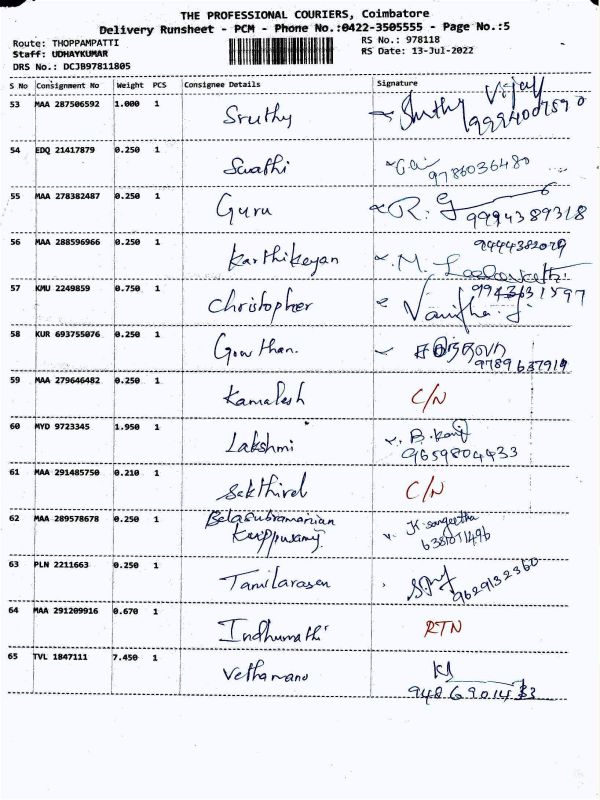 THE PROFESSIONAL COURIERS, Coimbatore
Delivery Runsheet - PCM - Phone No.:0422-3505555 - Page No.:5
Route: THOPPAMPATTI RS No.: 978118
Staff: UDHAYKUMAR RS Date: 13-Jul-2022
DRS No.: DCJB97811805
S No Consignment No Weight PCS Consignee Details Signature
53 MAA 287506592 1.000 1 Sruthy Sruthy Vijay
54 EDQ 21417879 0.250 1 Swathi 9786036480
55 MAA 278382487 0.250 1 Guru R. G 9994389318
56 MAA 288596966 0.250 1 Karthikeyan M. 9444382079
57 KMU 2249859 0.750 1 Christopher Vanitha.J
58 KUR 693755076 0.250 1 Gowthan. 9789637919
59 MAA 279646482 0.250 1 Kamalesh C/N
60 MYD 9723345 1.950 1 Lakshmi B. 9659804433
61 MAA 291485750 0.210 1 Sakthivel C/N
62 MAA 289578678 0.250 1 Balasubramanian K. sangeetha
Karppusamy
63 PLN 2211663 0.250 1 Tamilarasan 9629132360
64 MAA 291209916 0.670 1 Indhumathi RTN
65 TVL 1847111 7.450 1 Vethamano